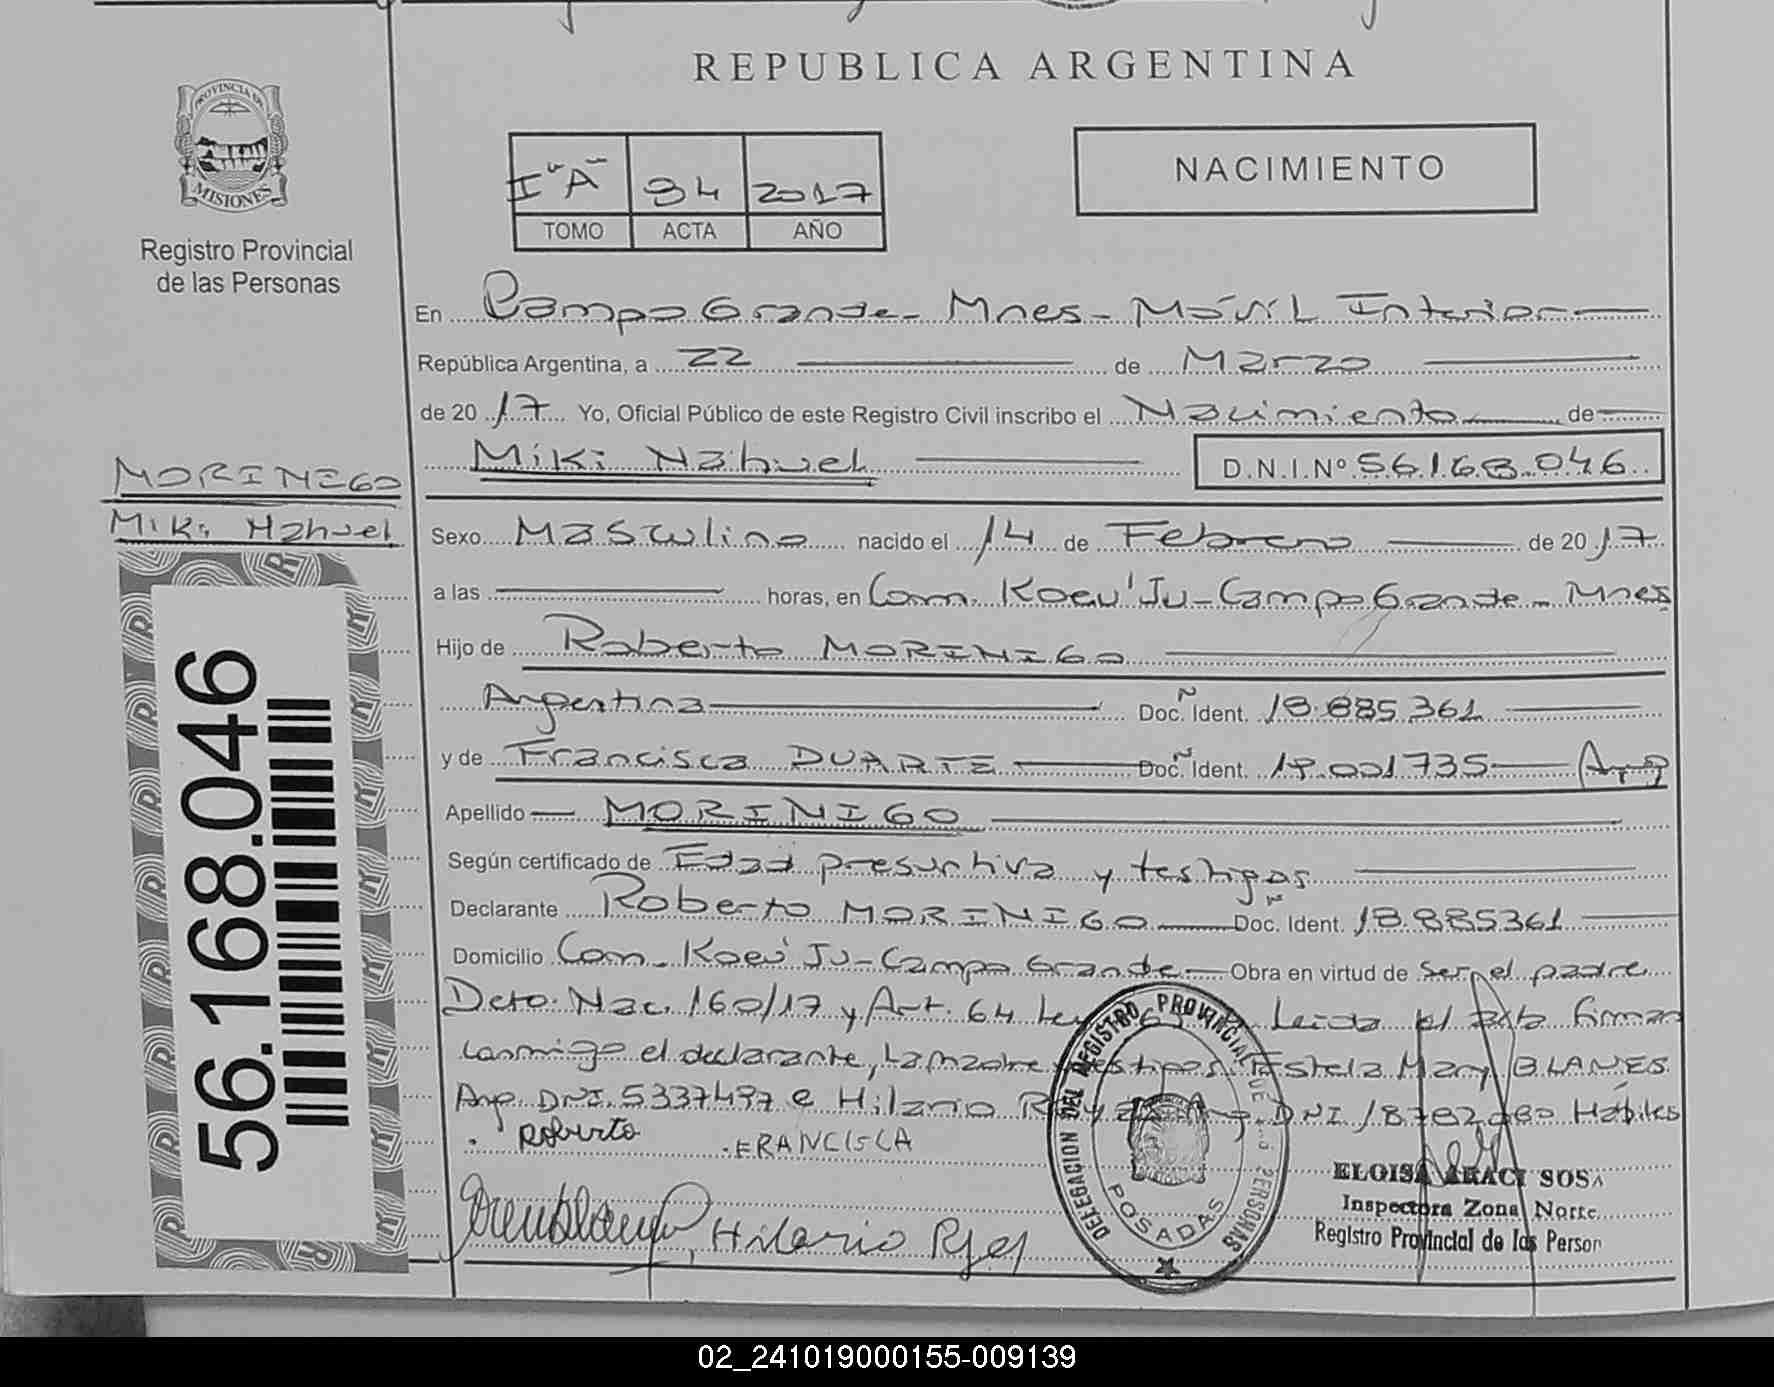 REPUBLICA ARGENTINA
PROVINCIA DE
MISIONES
Registro Provincial
de las Personas
I "A" 94 2017
TOMO ACTA AÑO
NACIMIENTO
En Campo Grande - Mnes - Móvil Interior
República Argentina, a 22 de Marzo
de 2017 Yo, Oficial Público de este Registro Civil inscribo el Nacimiento de
Miki Nahuel D.N.I.Nº 56.168.046
MORINIGO
Miki Nahuel
56.168.046
Sexo Masculino nacido el 14 de Febrero de 2017
a las horas, en Com. Koeu'Ju - Campo Grande - Mnes
Hijo de Roberto MORINIGO
Argentina Doc. Ident. 18.885.361
y de Francisca DUARTE Doc. Ident. 19.001735 Arg
Apellido MORINIGO
Según certificado de Edad presuntiva y testigos
Declarante Roberto MORINIGO Doc. Ident. 18.885361
Domicilio Com. Koeu' Ju - Campo Grande - Obra en virtud de ser el padre
Dcto. Nac. 160/17 y Art. 64 Ley Leida el acta firman
conmigo el declarante, la madre testigos Estela Mary BLANES
Arg. DNI. 5337497 e Hilario Arg. DNI Hábiles
Roberto FRANCISCA
Hilario
DELEGACION DEL REGISTRO PROVINCIAL DE LAS PERSONAS
POSADAS
ELOISA ARACI SOSA
Inspectora Zona Norte
Registro Provincial de las Person
02_241019000155-009139